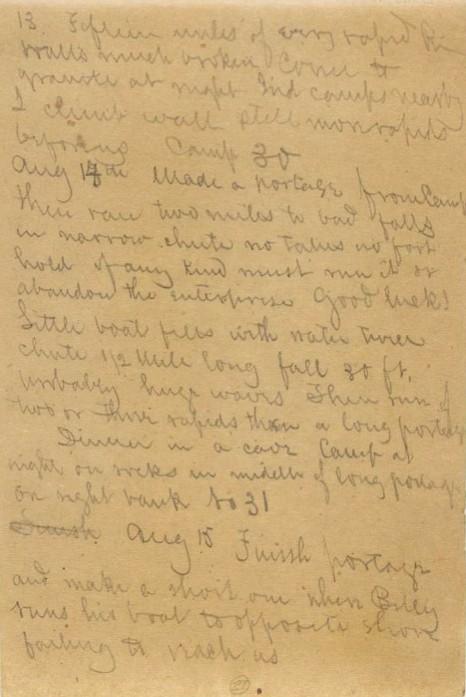 13. Fifteen miles of very rapid Riv
walls much broken Come to
granite at night Ind camps nearby
I climb wall still more rapids
before us Camp 30
Aug 14th Made a portage from Camp
then ran two miles to bad falls
in narrow chute no talus no foot
hold of any kind must run it or
abandon the enterprise Good luck!
Little boat fills with water twice
chute 1/2 Mile long fall 30 ft.
probably huge waves Then run of
two or three rapids then a long portage
Dinner in a cave Camp at
night on rocks in middle of long portage
on right bank No 31
Finish Aug 15 Finish portage
and make a short one when Billy
runs his boat to opposite shore
failing to reach us